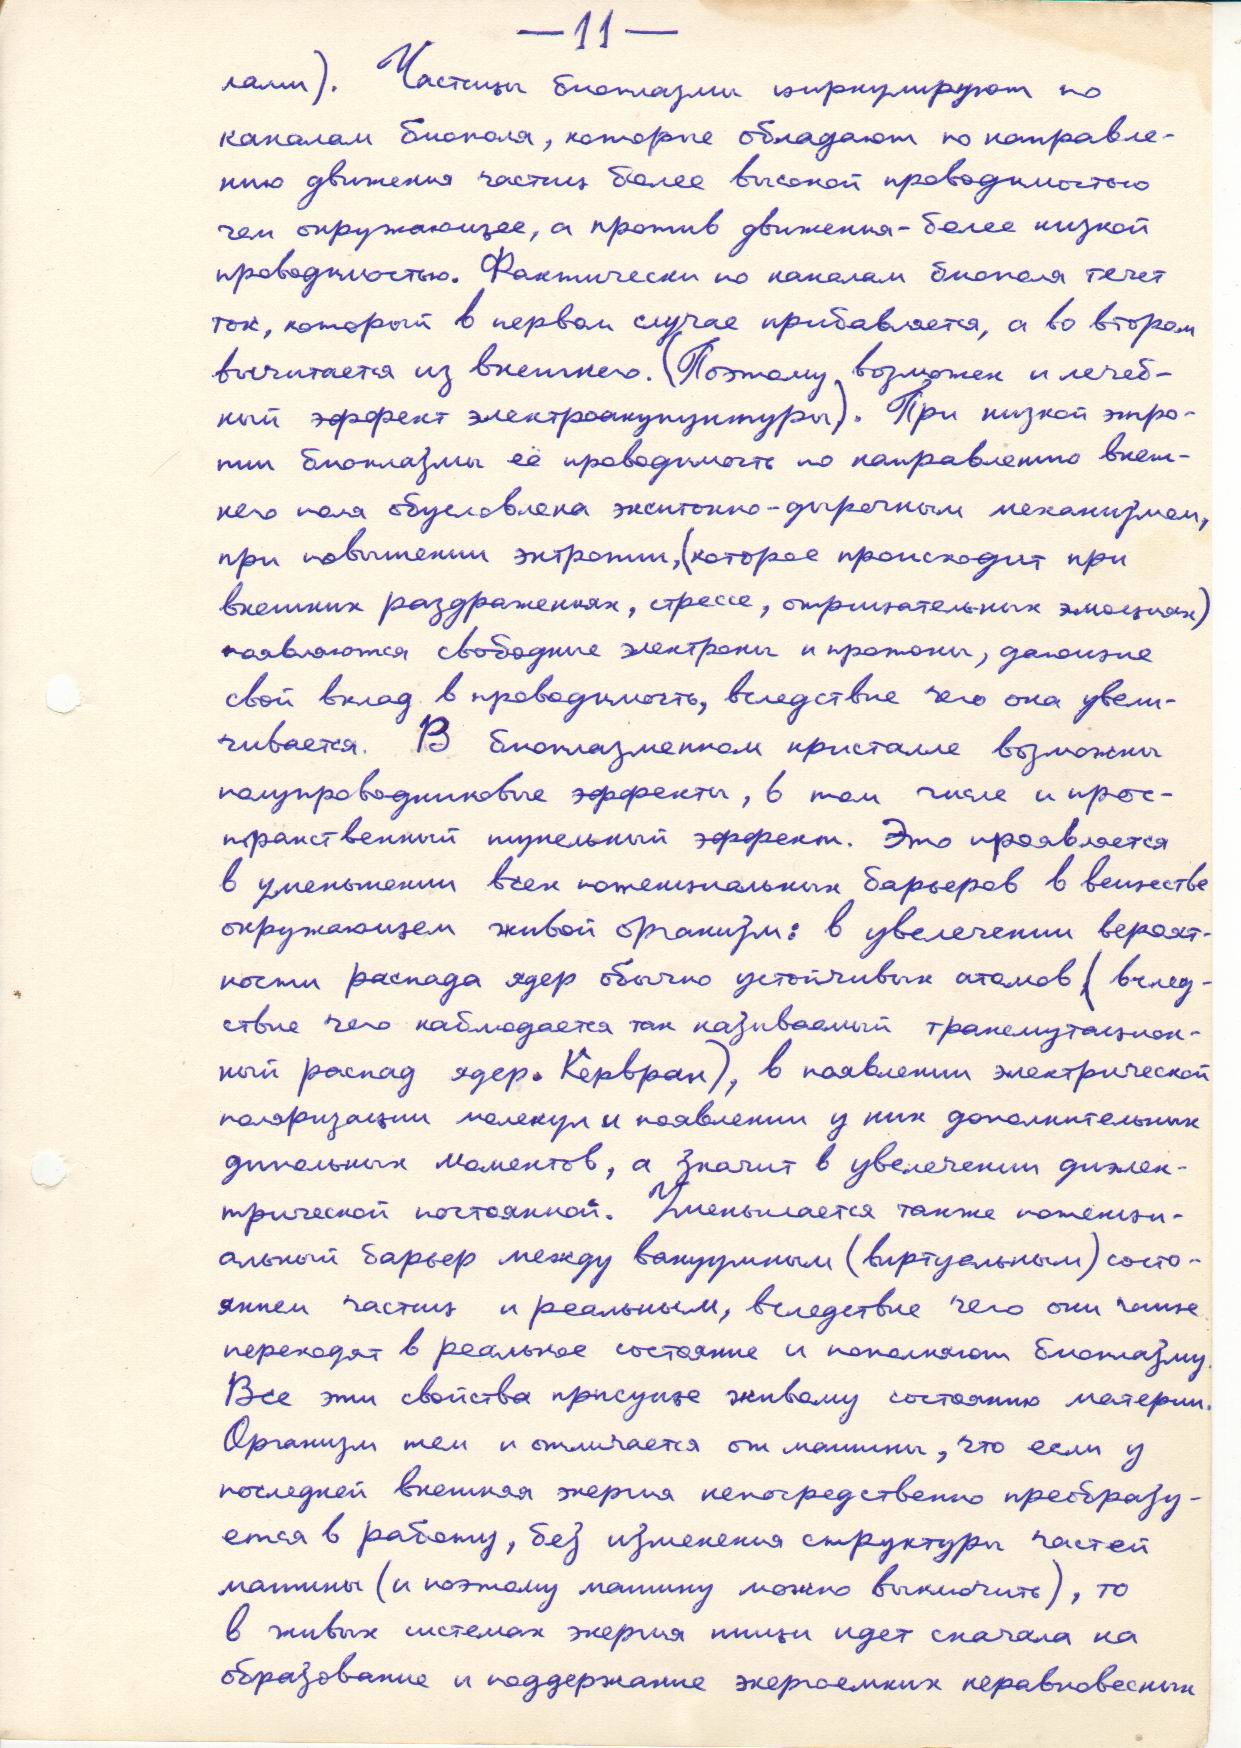 — 11 —
лами). Частицы биоплазмы циркулируют по
каналам биополя, которые обладают по направле-
нию движения частиц более высокой проводимостью
чем окружающее, а против движения - более низкой
проводимостью. Фактически по каналам биополя течет
ток, который в первом случае прибавляется, а во втором
вычитается из внешнего. (Поэтому возможен и лечеб-
ный эффект электроакупунктуры). При низкой этро-
пии биоплазмы её проводимость по направлению внеш-
него поля обусловлена экситонно-дырочным механизмом,
при повышении энтропии, (которое происходит при
внешних раздражениях, стрессе, отрицательных эмоциях)
появляются свободные электроны и протоны, дающие
свой вклад в проводимость, вследствие чего она увели-
чивается. В биоплазменном кристалле возможны
полупроводниковые эффекты, в том числе и прос-
транственный тунельный эффект. Это проявляется
в уменьшении всех потенциальных барьеров в веществе
окружающем живой организм: в увеличении вероят-
ности распада ядер обычно устойчивых атомов (вслед-
ствие чего наблюдается так называемый трансмутацион-
ный распад ядер. Кервран), в появлении электрической
поляризации молекул и появлении у них дополнительных
дипольных моментов, а значит в увеличении диэлек-
трической постоянной. Уменьшается также потенци-
альный барьер между вакуумным (виртуальным) состо-
янием частиц и реальным, вследствие чего они чаще
переходят в реальное состояние и пополняют биоплазму.
Все эти свойства присущие живому состоянию материи.
Организм тем и отличается от машины, что если у
последней внешняя энергия непосредственно преобразу-
ется в работу, без изменения структуры частей
машины (и поэтому машину можно выключить), то
в живых системах энергия пищи идет сначала на
образование и поддержание энергоемких неравновесных